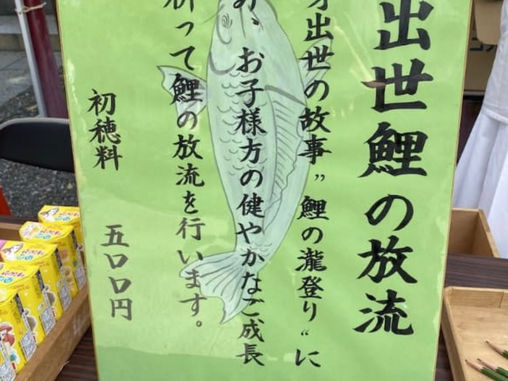 出世鯉の放流
身出世の故事”鯉の瀧登り“に
、お子様方の健やかなご成長
祈って鯉の放流を行います。
初穂料　五〇〇円